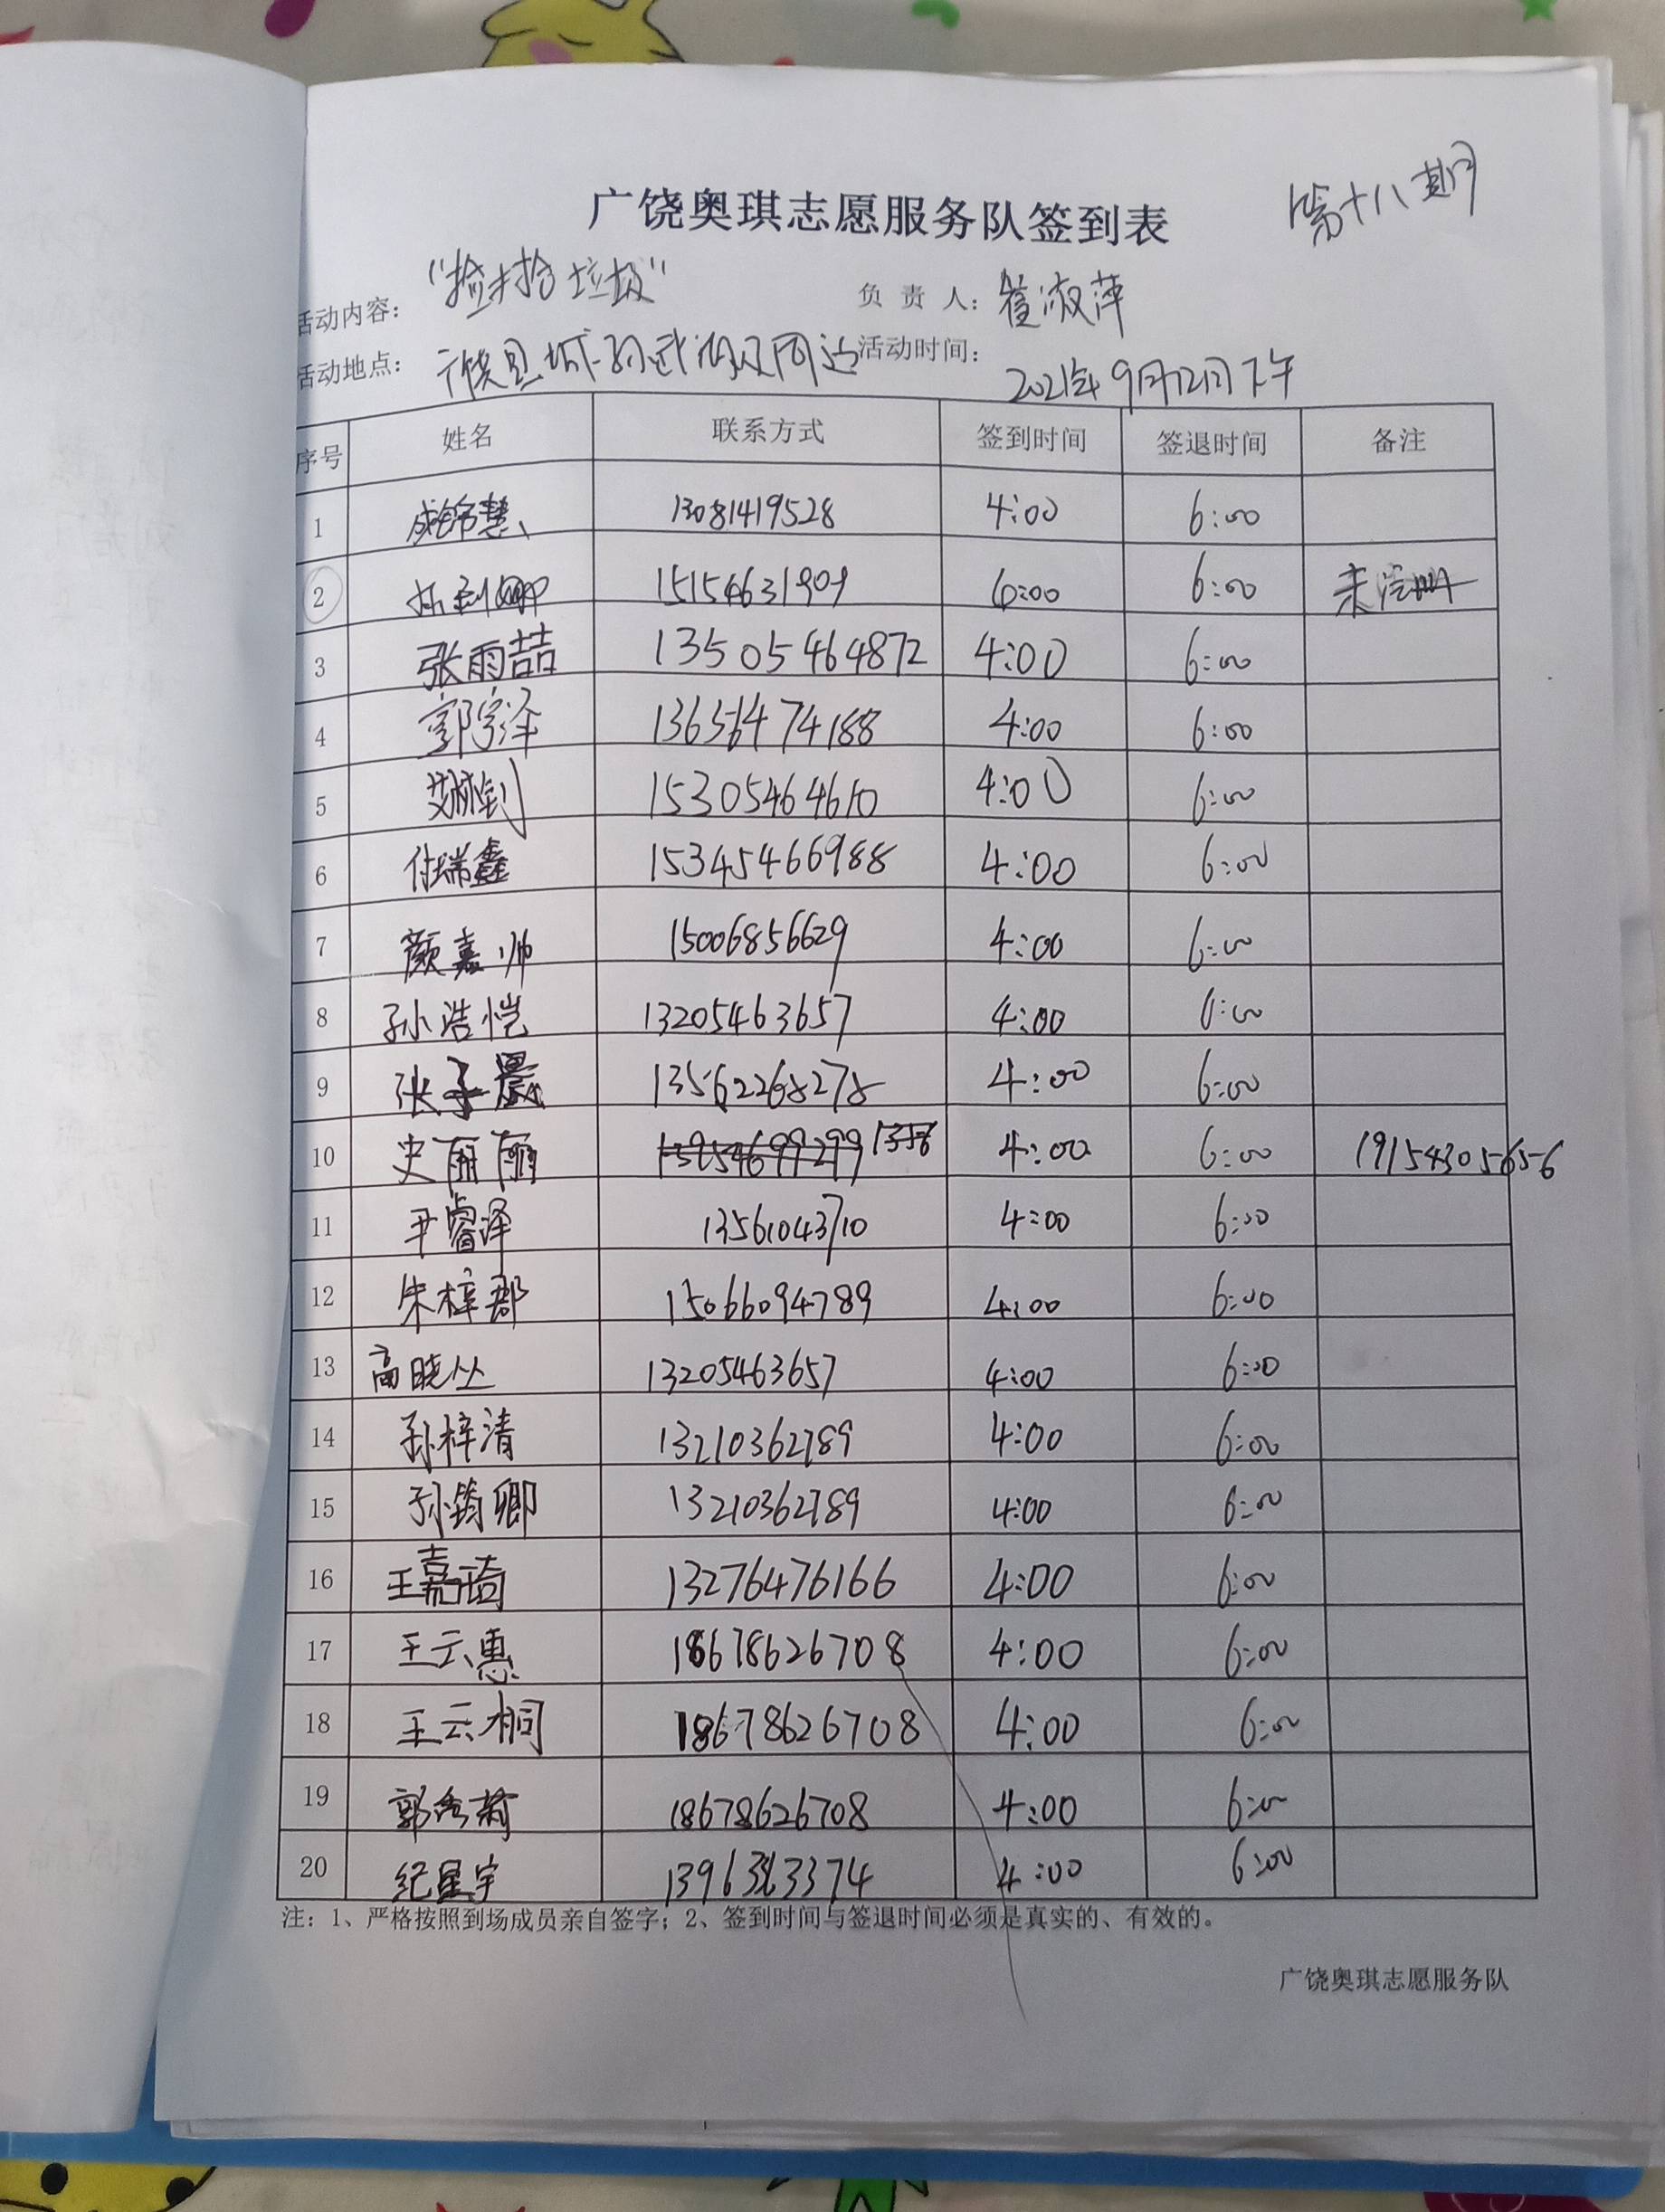 第十八期
广饶奥琪志愿服务队签到表
活动内容： “捡拾垃圾” 负 责 人： 崔淑萍
活动地点： 广饶县孙武湖及周边 活动时间： 2021年9月12日下午
序号 姓名 联系方式 签到时间 签退时间 备注
1 成锦慧 13081419528 4:00 6:00
2 15154631909 6:00 6:00 未注册
3 张雨喆 13505464872 4:00 6:00
4 郭宇泽 4:00 6:00
5 15305464610 4:00 6:00
6 付瑞鑫 15345466988 4:00 6:00
7 颜嘉帅 15006856629 4:00 6:00
8 孙浩恺 13205463657 4:00 6:00
9 张子晨 13562268278 4:00 6:00
10 史丽丽 4:00 6:00 19154305656
11 尹睿泽 13561043710 4:00 6:00
12 朱梓郡 15066094789 4:00 6:00
13 高晓丛 13205463657 4:00 6:00
14 孙梓清 13210362789 4:00 6:00
15 孙筠卿 13210362789 4:00 6:00
16 王嘉琦 13276476166 4:00 6:00
17 王云惠 18678626708 4:00 6:00
18 王云桐 18678626708 4:00 6:00
19 郭秀莉 18678626708 4:00 6:00
20 纪星宇 4:00 6:00
注：1、严格按照到场成员亲自签字；2、签到时间与签退时间必须是真实的、有效的。
广饶奥琪志愿服务队